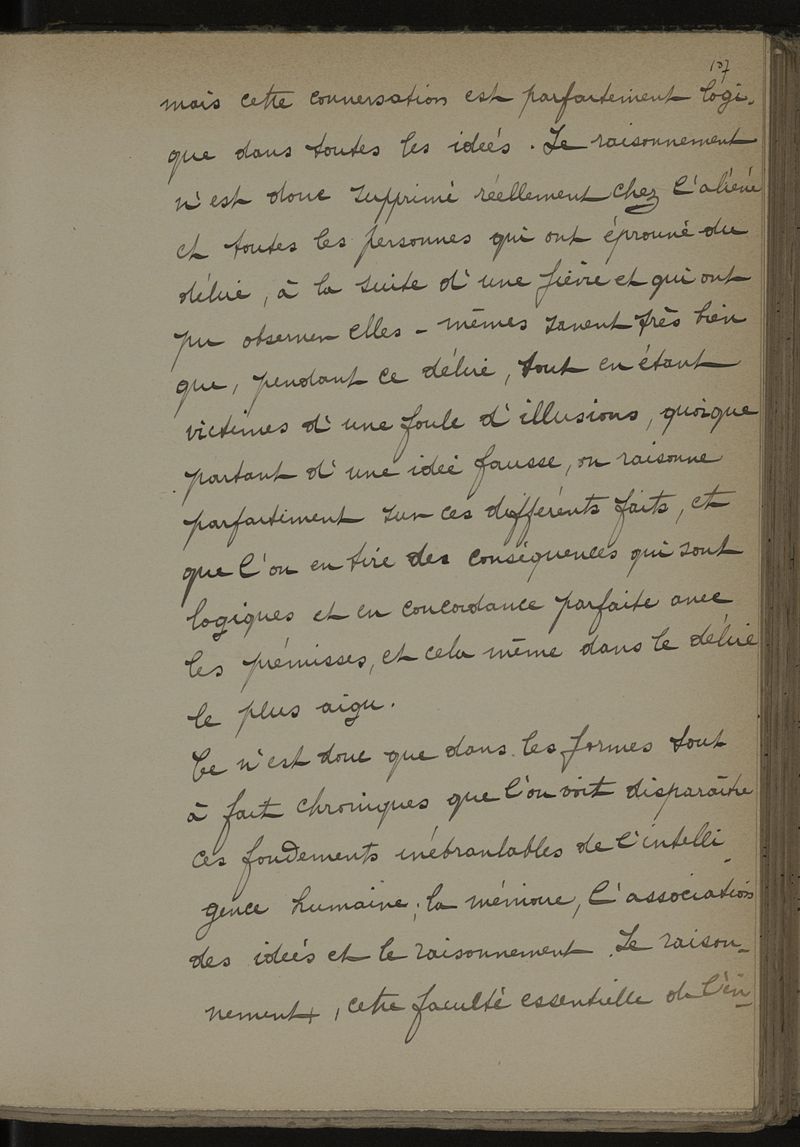 137
mais cette conversation est parfaitement logi-
que dans toutes les ideés. Le raisonnement
n'est donc supprimé réellement chez l'aliéné
et toutes les personnes qui ont éprouvé du
délire, à la suite d'une fièvre et qui ont
pu observer elles-mêmes savent très bien
que, pendant ce délire, tout en étant
victimes d'une foule d'illusions, quoique
partant d'une ideé fausse, on raisonne
parfaitement sur ces différents faits, et
que l'on en tire des conséquences qui sont
logiques et en concordance parfaite avec
les prémisses, et cela même dans le délire
le plus aigu.
Ce n'est donc que dans les formes tout
à fait chroniques que l'on voit disparaître
ces fondements inébranlables de l'intelli-
gence humaine; la mémoire, l'association
des ideés et le raisonnement. Le raison-
nement, cette faculté essentielle de l'in-